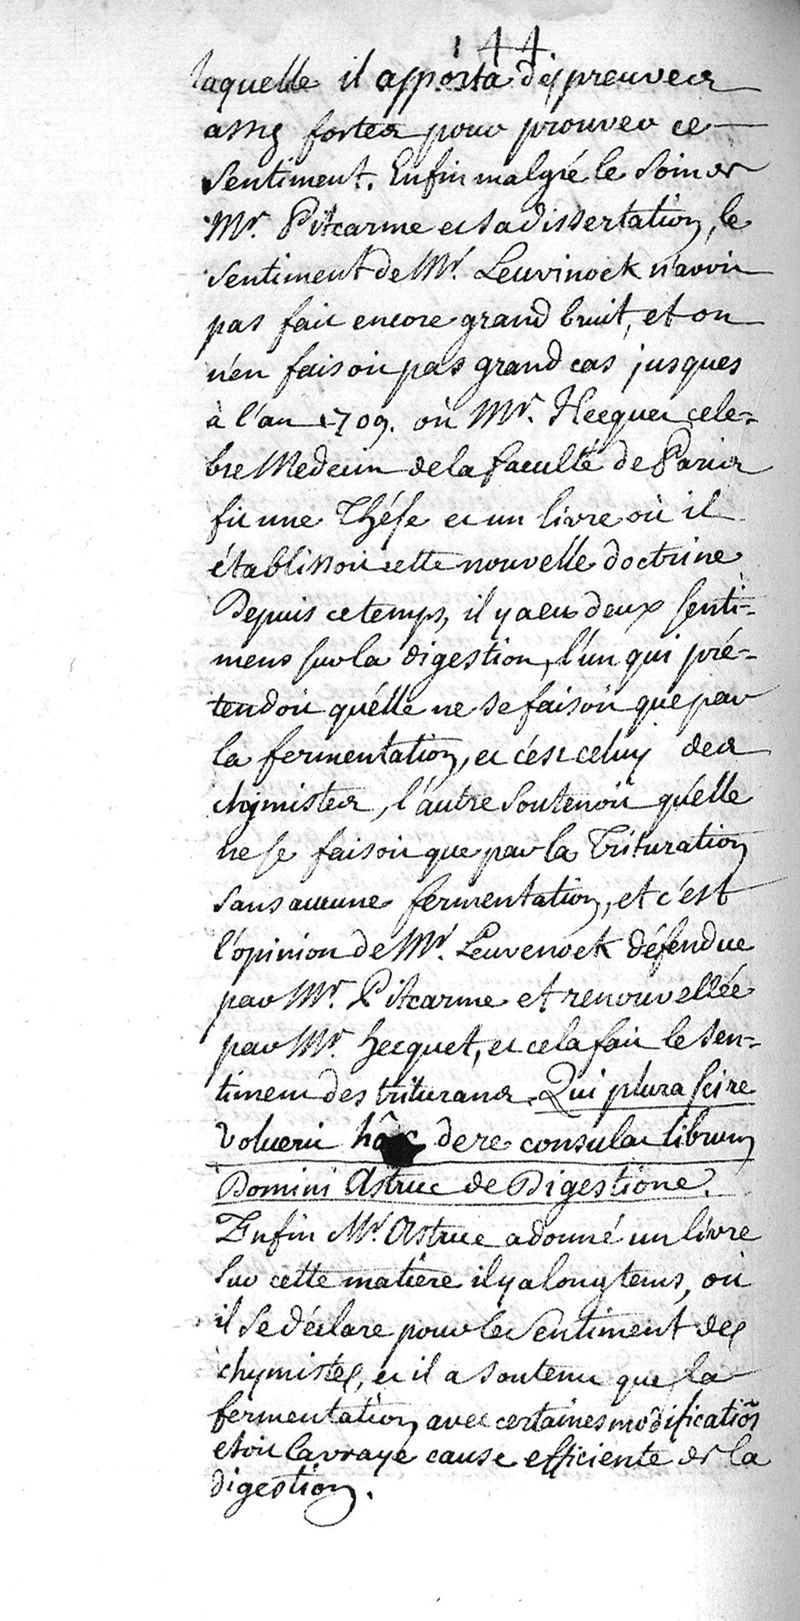 144.
laquelle il apporta des preuves
assés fortes pour prouver ce
sentiment. Enfin malgré le soin de
Mr. Pitcarme et sa dissertation, le
sentiment de Mr. Leuvinoek n'avoit
pas fait encore grand bruit, et on
n'en faisoit pas grand cas jusques
à l'an 1709. où Mr. Hecquet cele-
bre Medecin de la faculté de Paris
fit une Thése et un livre où il
établissoit cette nouvelle doctrine
Depuis ce temps, il y a eu deux senti-
mens sur la digestion, l'un qui pré-
tendoit qu'élle ne se faisoit que par
la fermentation, et c'est celuy des
chymistes, l'autre soutenoit qu'elle
ne se faisoit que par la Trituration
sans aucune fermentation, et c'est
l'opinion de Mr. Leuvenoek défendue
par Mr. Pitcarme et renouvellée
par Mr. hecquet, et cela fait le sen-
timent des triturans. Qui plura scire
voluerit hâc de re consulat librum
Domini Astruc de Digestione.
Enfin Mr. Astruc a donné un livre
sur cette matière il y a longtems, où
il se déclare pour le sentiment des
chymistes, et il a soutenu que la
fermentation avec certaines modificatiõs
etoit la vraye cause efficiente de la
digestion.